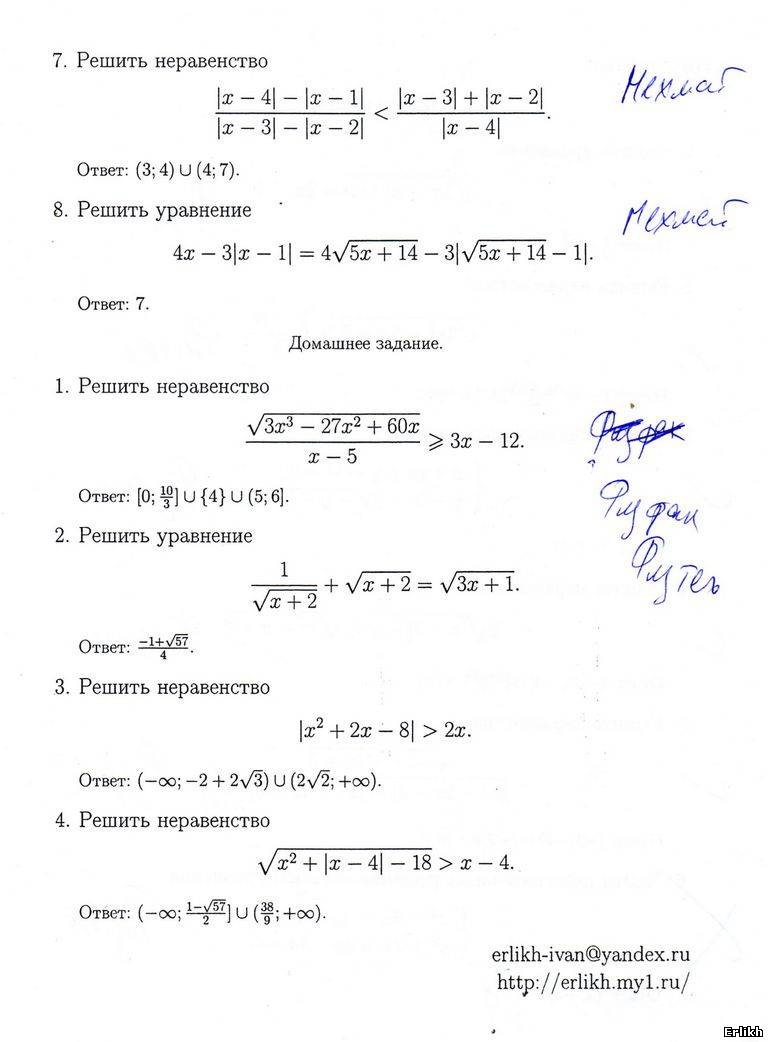 7. Решить неравенство
Мехмат
(|x − 4| − |x − 1|)/(|x − 3| − |x − 2|) < (|x − 3| + |x − 2|)/|x − 4|.
Ответ: (3; 4) ∪ (4; 7).
8. Решить уравнение
Мехмат
4x − 3|x − 1| = 4√(5x + 14) − 3|√(5x + 14) − 1|.
Ответ: 7.
Домашнее задание.
1. Решить неравенство
√(3x³ − 27x² + 60x)/(x − 5) ⩾ 3x − 12.
Физфак
Ответ: [0; 10/3] ∪ {4} ∪ (5; 6].
Физфак
2. Решить уравнение
Физтех
1/√(x + 2) + √(x + 2) = √(3x + 1).
Ответ: (−1+√57)/4.
3. Решить неравенство
|x² + 2x − 8| > 2x.
Ответ: (−∞; −2 + 2√3) ∪ (2√2; +∞).
4. Решить неравенство
√(x² + |x − 4| − 18) > x − 4.
Ответ: (−∞; (1−√57)/2] ∪ (38/9; +∞).
erlikh-ivan@yandex.ru
http://erlikh.my1.ru/
Erlikh